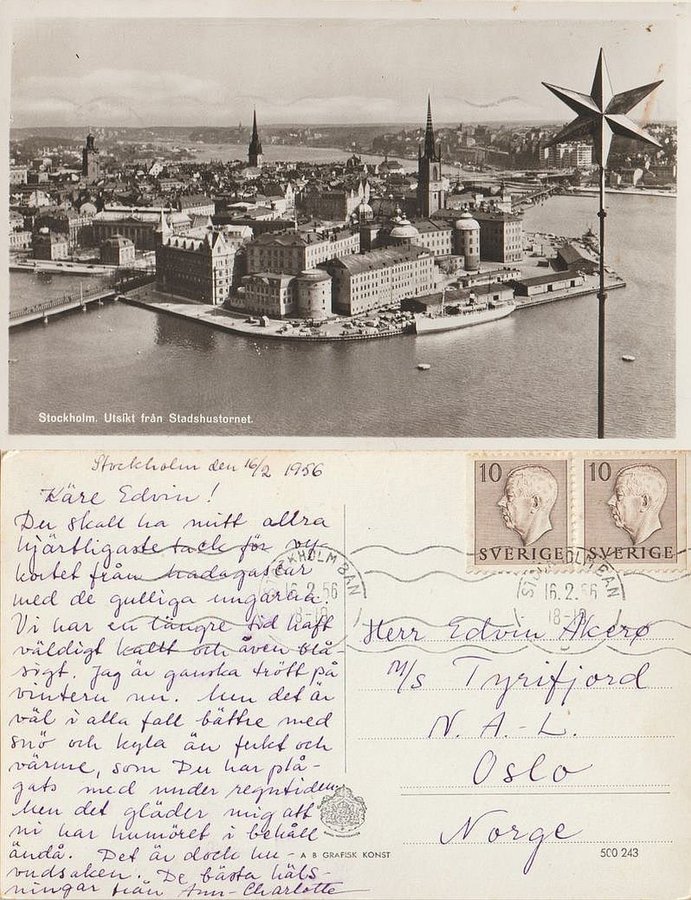 Stockholm. Utsikt från Stadshustornet.
Stockholm den 16/2 1956
Käre Edvin!
Du skall ha mitt allra
hjärtligaste tack för vy-
kortet från Madagascar
med de gulliga ungarna.
Vi har en längre tid haft
väldigt kallt och även blå-
sigt. Jag är ganska trött på
vintern nu. Men det är
väl i alla fall bättre med
snö och kyla än fukt och
värme, som Du har plå-
gats med under regntiden
Men det gläder mig att
ni har humöret i behåll
ändå. Det är dock hu-
vudsaken. De bästa häls-
ningar från Ann-Charlotte
10 SVERIGE
10 SVERIGE
STOCKHOLM BAN
16.2.56
18-19
STOCKHOLM BAN
16.2.56
18-19
Herr Edvin Akerø
M/s Tyrifjord
N. A.-L.
Oslo
Norge
A B GRAFISK KONST
500 243